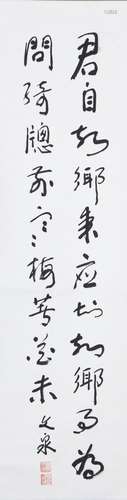 君自故鄉來應知故鄉事為
問綺牕前寒梅著花未
文泉